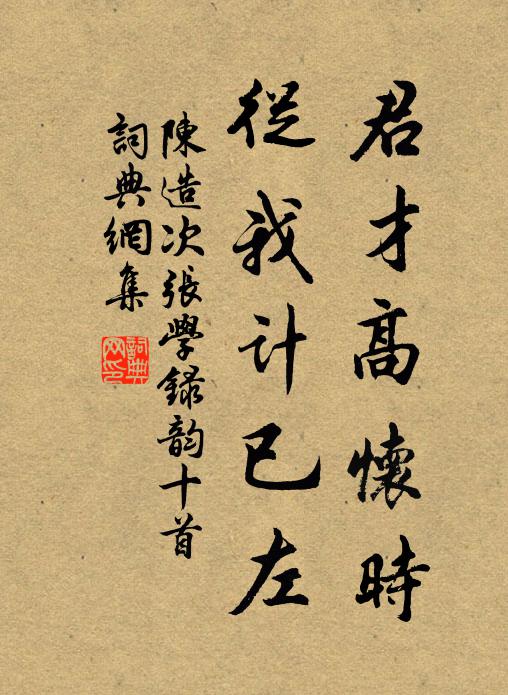 君才高懷時
從我計已左
陳造次張學録韵十首
詞典網集
詞典網印